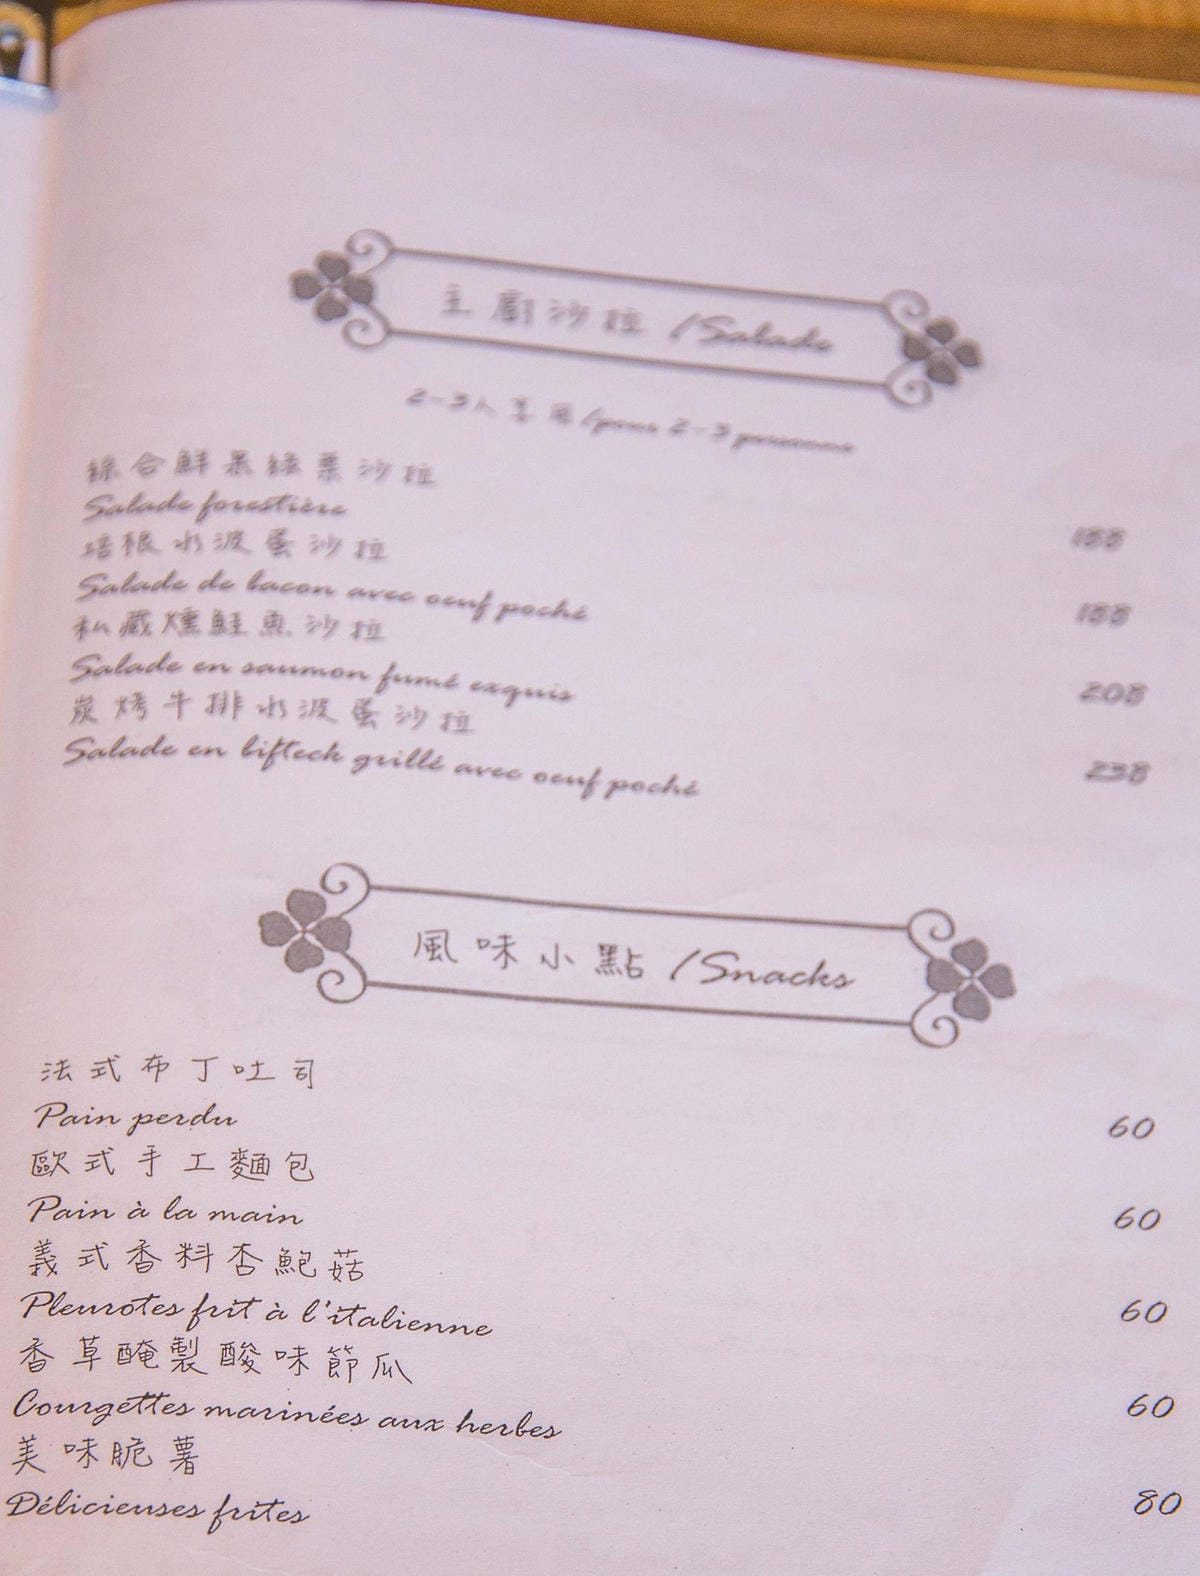 主廚沙拉 /Salade
2-3人享用/pour 2-3 personne
綜合鮮果綠葉沙拉
Salade forestière 188
培根水波蛋沙拉
Salade de bacon avec oeuf poché 188
私藏燻鮭魚沙拉
Salade en saumon fumé exquis 208
炭烤牛排水波蛋沙拉
Salade en bifteck grillé avec oeuf poché 238
風味小點 /Snacks
法式布丁吐司
Pain perdu 60
歐式手工麵包
Pain à la main 60
義式香料杏鮑菇
Pleurotes frit à l'italienne 60
香草醃製酸味節瓜
Courgettes marinées aux herbes 60
美味脆薯
Délicieuses frites 80